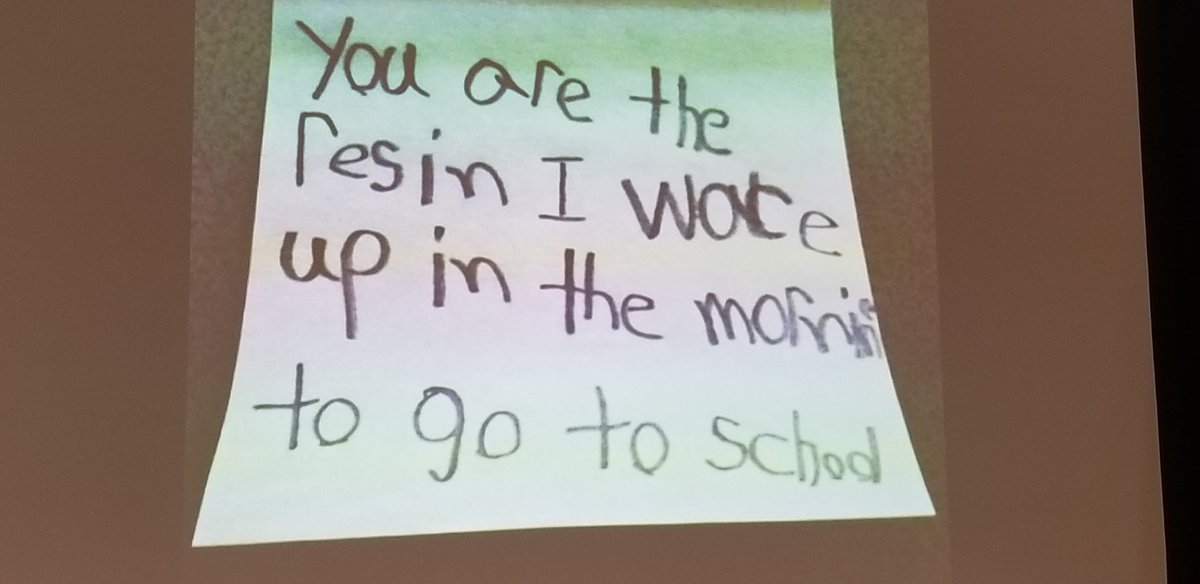 You are the
resin I wace
up in the mornin
to go to school